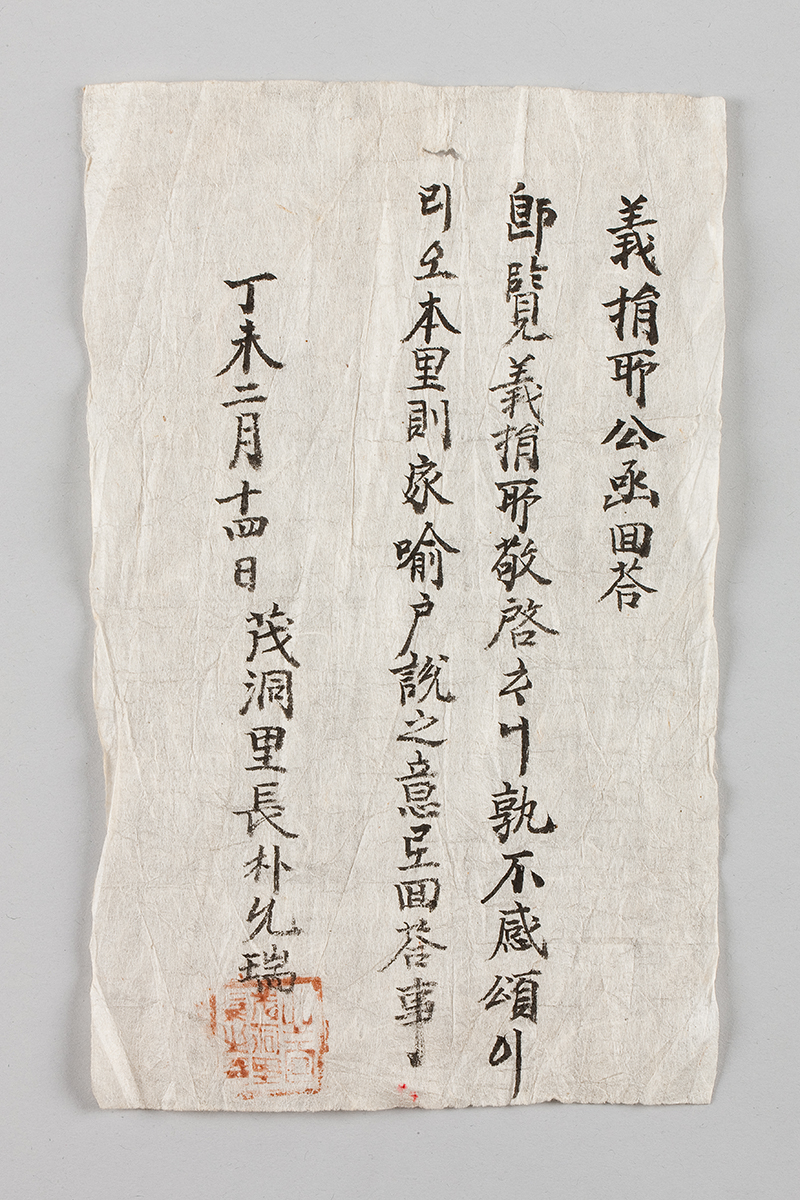 義捐所公函回荅
卽覽義捐所敬啓ᄒᆞ니孰不感頌이
리오本里則家喩户說之意로回荅事
丁未二月十四日 茂洞里長朴允瑞